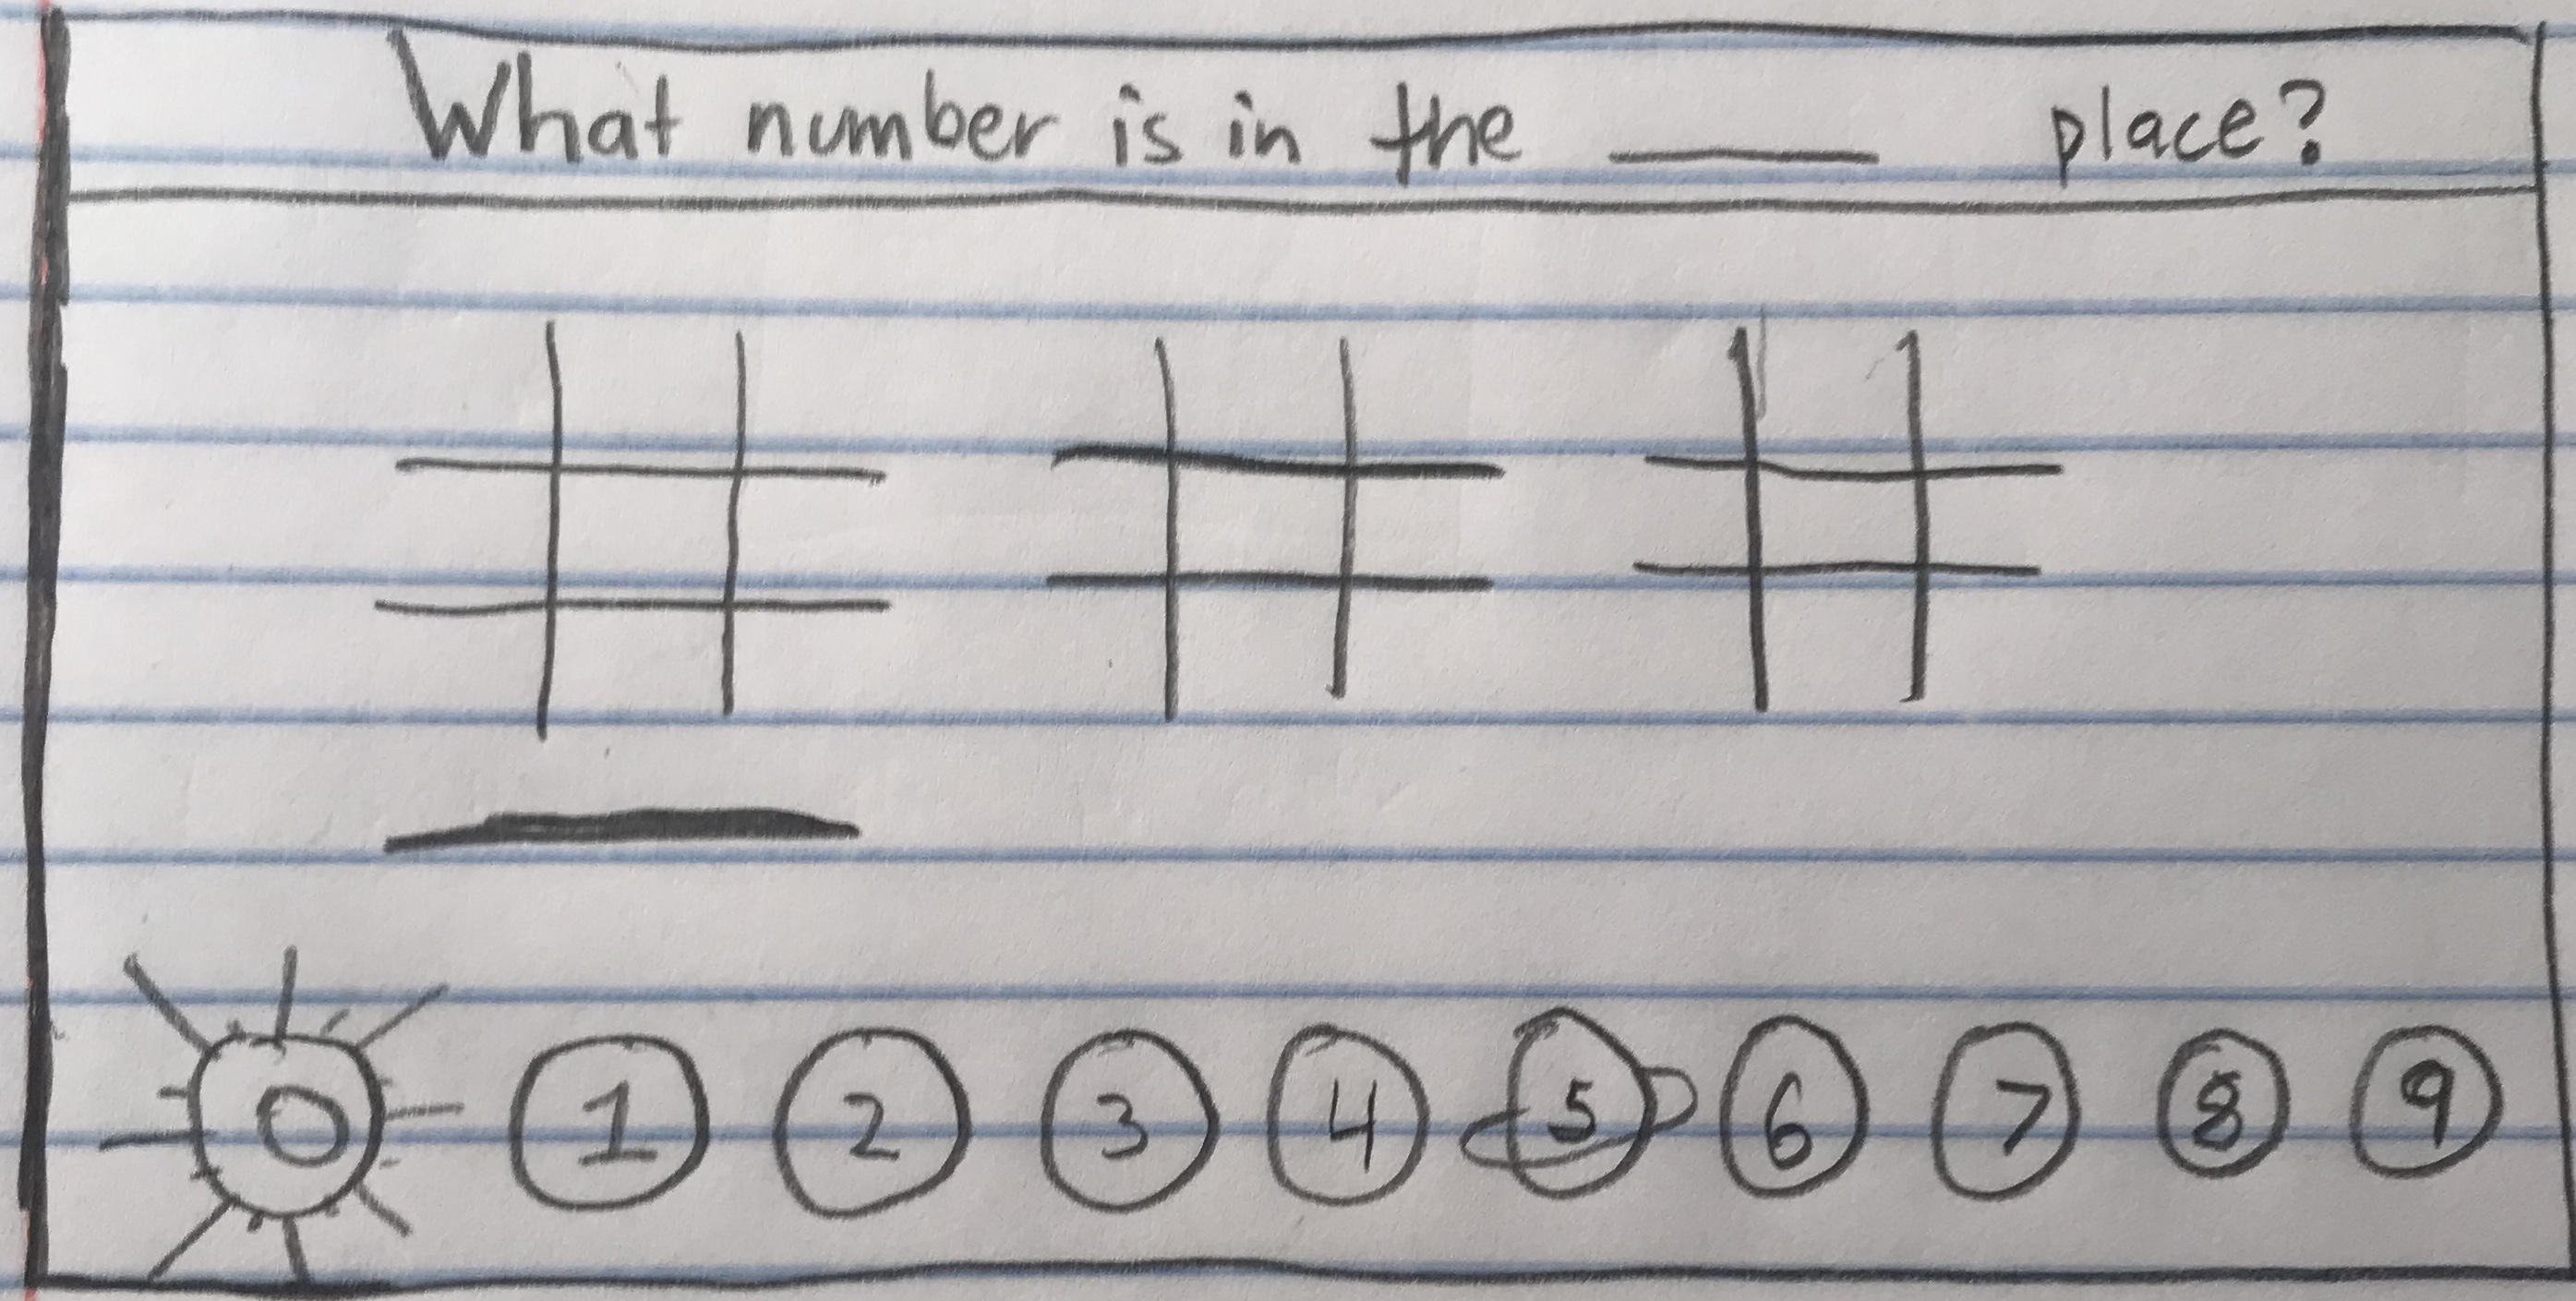 What number is in the ____ place?
# # #
0 1 2 3 4 5 6 7 8 9